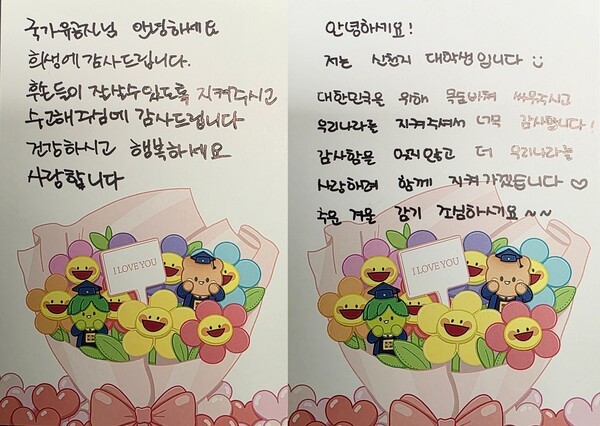 국가유공자님 안녕하세요
희생에 감사드립니다.
후손들이 잘살수 있도록 지켜주시고
수고해주심에 감사드립니다
건강하시고 행복하세요
사랑합니다
I LOVE YOU
안녕하세요!
저는 신천지 대학생입니다
대한민국을 위해 목숨바쳐 싸워주시고
우리나라를 지켜주셔서 너무 감사합니다!
감사함을 잊지않고 더 우리나라를
사랑하며 함께 지켜가겠습니다 ♡
추운 겨울 감기 조심하세요~~
I LOVE YOU